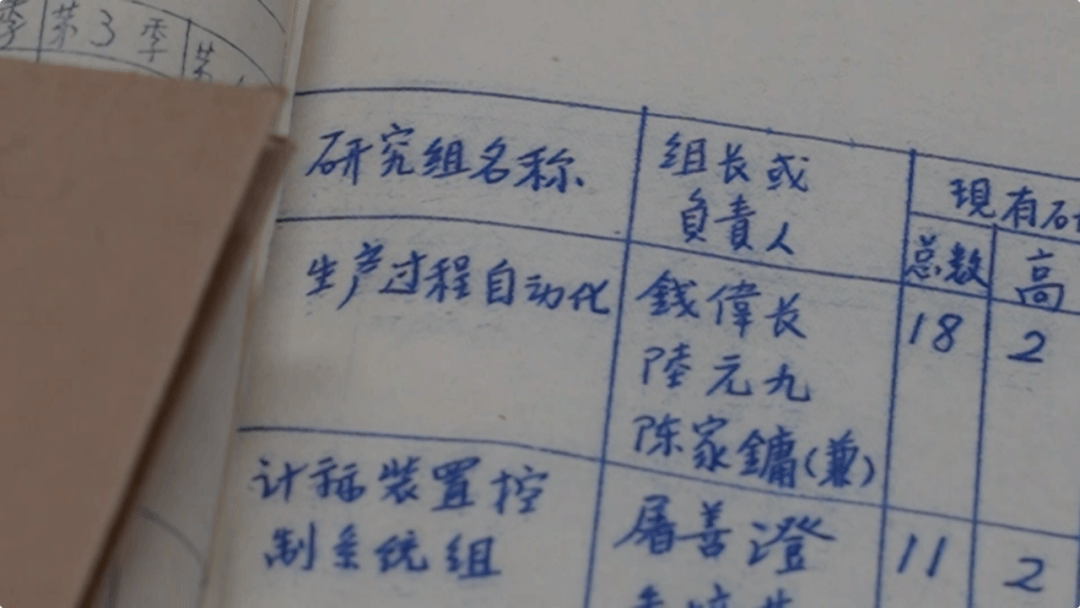 第3季
研究组名称
组长或
负責人
現有研
总数
高
生产过程自动化
錢偉長
陸元九
陈家鏞(兼)
18
2
计标装置控
制系统组
屠善澄
11
2